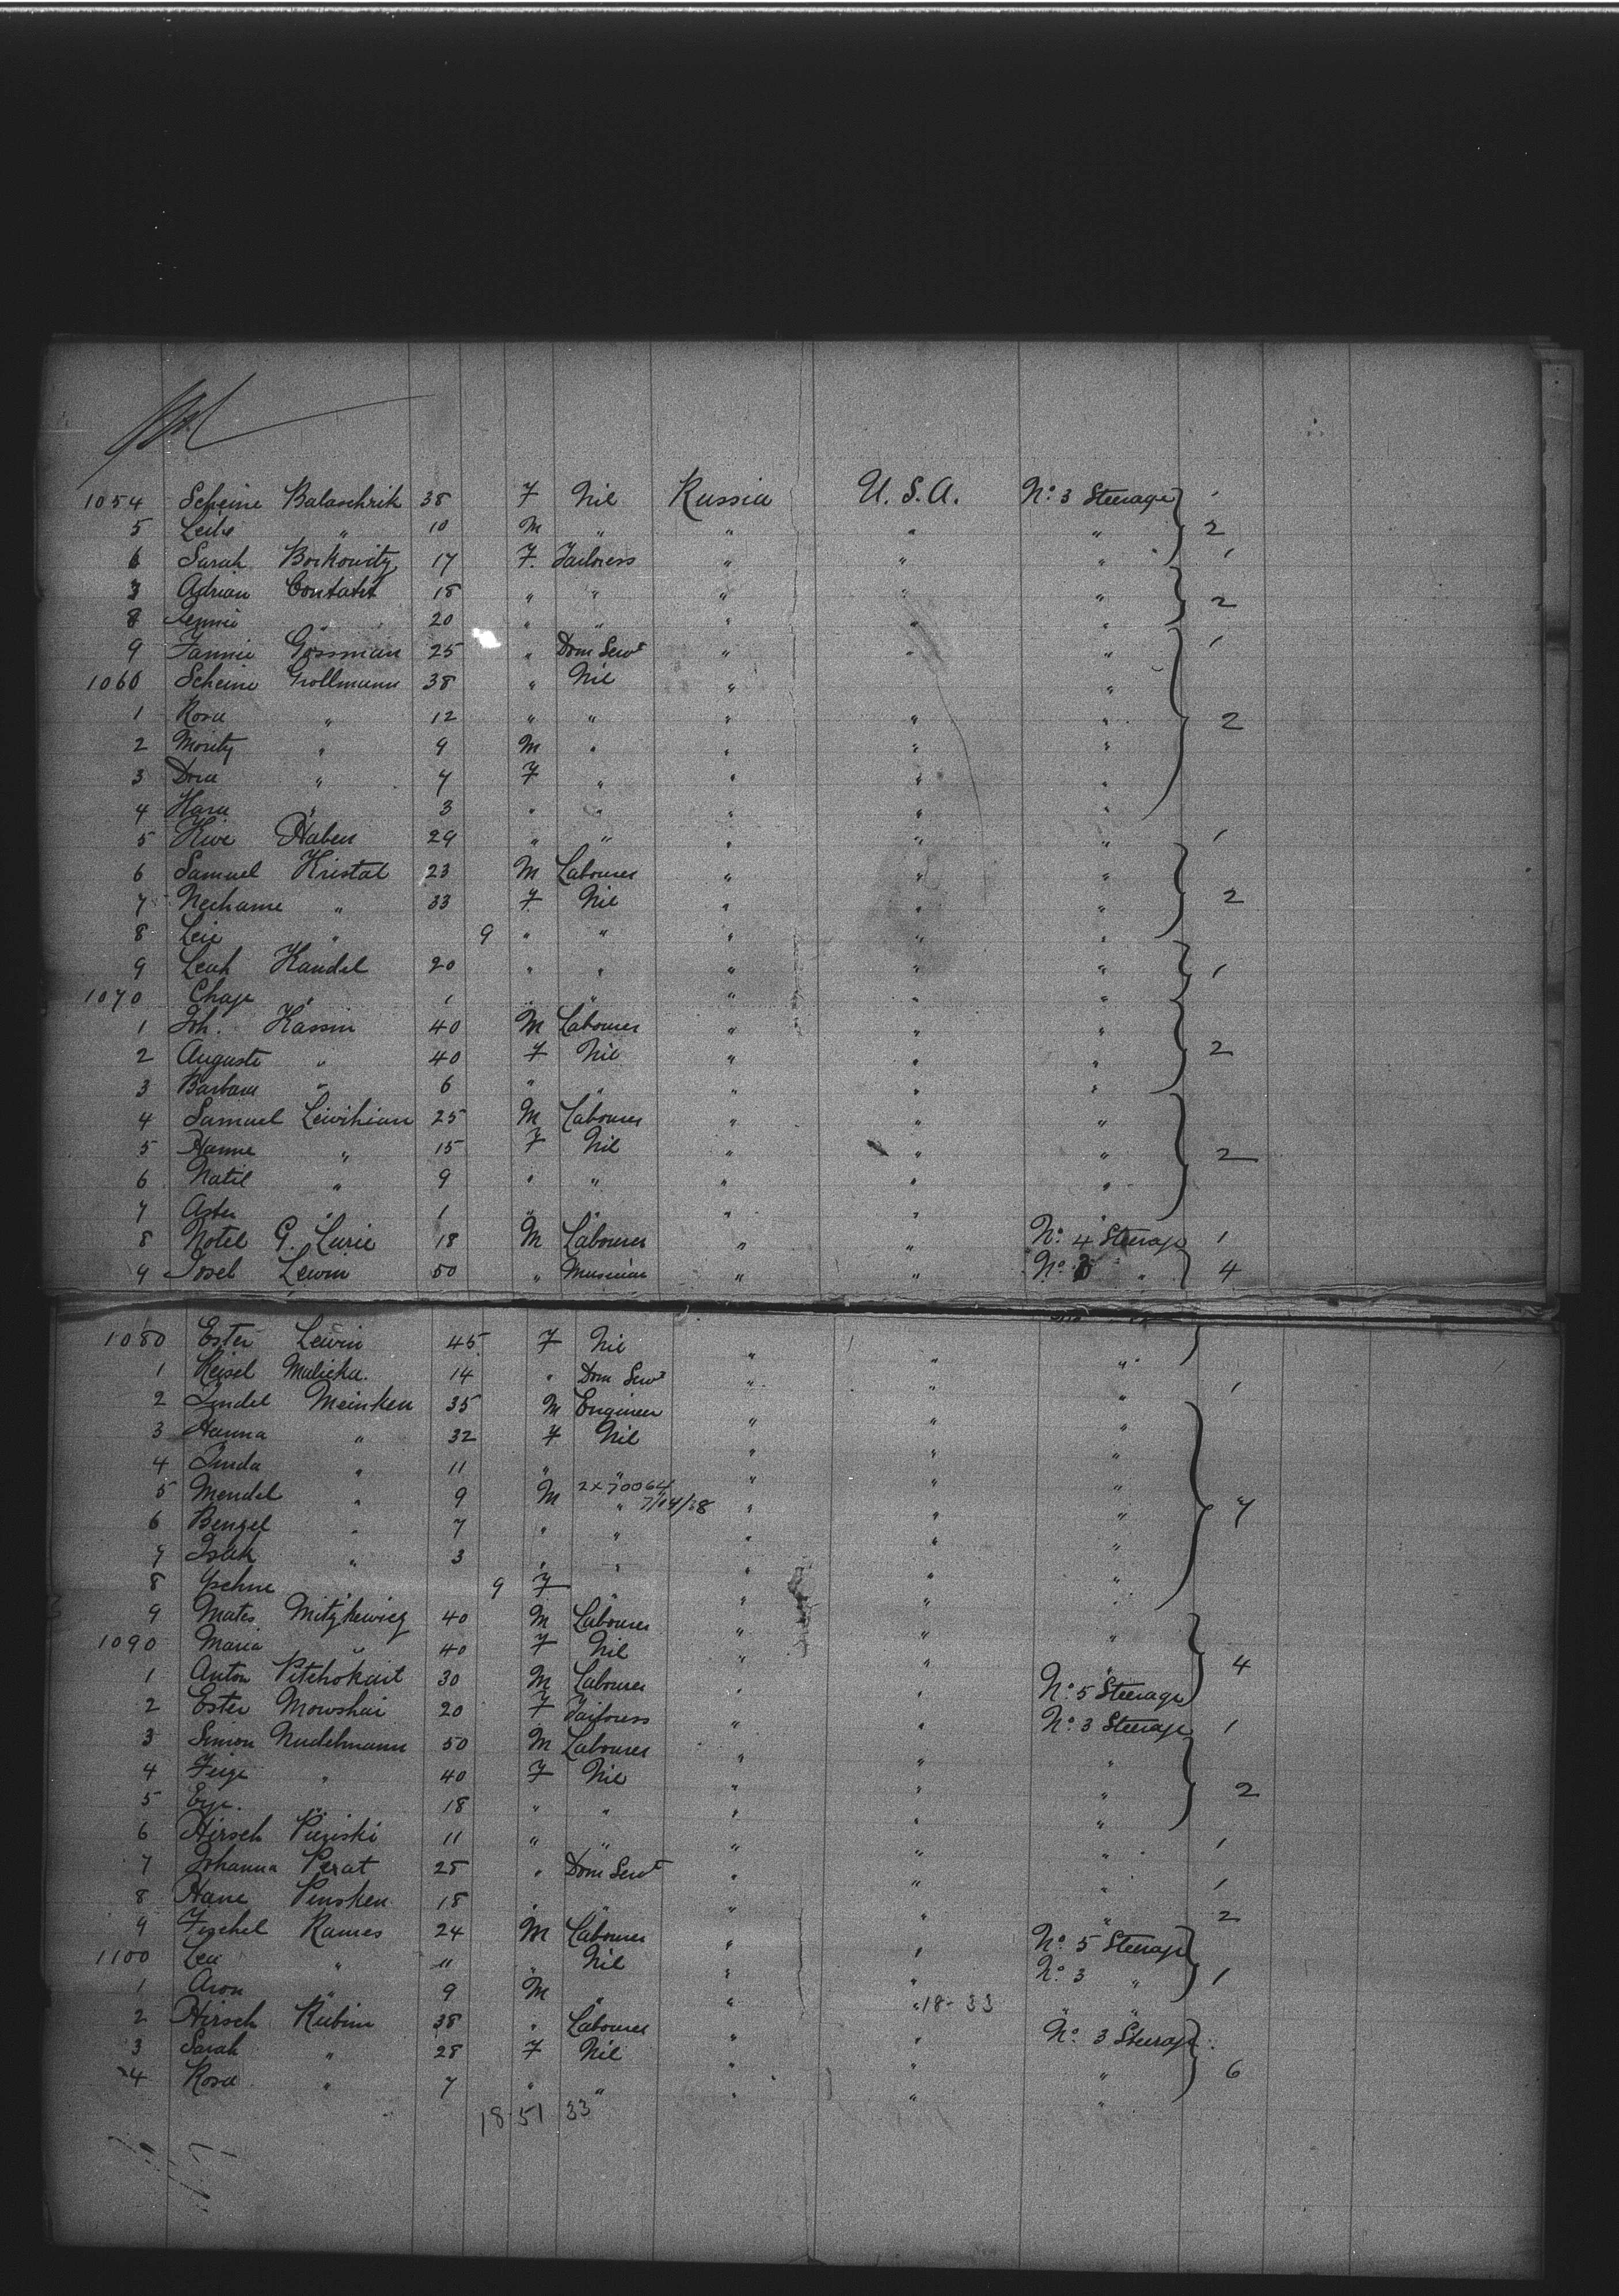 1054 Scheine Balaschrik 38 F Nil Russia U.S.A. No. 3 Steerage
5 Leibe " 10 M " " " " 2
6 Sarah Borkowitz 17 F. Tailoress " " " 1
7 Adrian Contatst 18 " " " " "
8 Jennie " 20 " " " " " 2
9 Fannie Gossman 25 " Dom Servt " " " 1
1060 Scheine Grollmann 38 " Nil " "
1 Rosa " 12 " " " " " 2
2 Moritz " 9 M " " " "
3 Dora " 7 F " " " "
4 Hara " 3 " " " " "
5 Hive Haben 29 " " " " " 1
6 Samuel Kristal 23 M Labourer " " "
7 Nechame " 33 F Nil " " " 2
8 Leie " 9 " " " " "
9 Leah Kandel 20 " " " " " 1
1070 Chaje " 1 " " " " "
1 Joh. Kassin 40 M Labourer " " "
2 Auguste " 40 F Nil " " " 2
3 Barbara " 6 " " " " "
4 Samuel Leivikian 25 M Labourer " " "
5 Hanne " 15 F Nil " " " 2
6 Natil " 9 " " " " "
7 Aster " 1 " " " " "
8 Notel G. Lurie 18 M Labourer " " No. 4 Steerage 1
9 Josel Lewin 50 " Musician " " No. 3 " 4
1080 Ester Lewin 45 F Nil " " "
1 Reisel Malicka. 14 " Dom Servt " " " 1
2 Jindel Meinken 35 M Engineer " " "
3 Hanna " 32 F Nil " " "
4 Linda " 11 " " " " "
2x70064
5 Mendel " 9 M " 7/14/38 " " "
6 Bengel " 7 " " " " " 7
7 Isak " 3 " " " " "
8 Yschne 9 F " " " "
9 Mates Mitzkewicz 40 M Labourer " " "
1090 Maria " 40 F Nil " " " 4
1 Anton Pitchokait 30 M Labourer " " No. 5 Steerage
2 Ester Mowshai 20 F Tailoress " " No. 3 Steerage 1
3 Simon Nudelmann 50 M Labourer " " "
4 Feige " 40 F Nil " " " 2
5 Ege. " 18 " " " " "
6 Hirsch Piriski 11 " " " " " 1
7 Johanna Perat 25 " Dom Servt " " " 1
8 Hane Pinsken 18 " " " " " 2
9 Fischel Rames 24 M Labourer " " No. 5 Steerage
1100 Lea " 11 " Nil " " No. 3 " 1
1 Aron " 9 M " " " 18-33 " "
2 Hirsch Rubin 38 " Labourer " " No. 3 Steerage
3 Sarah " 28 F Nil " " " 6
4 Rosa " 7 " " " " "
18 51 33